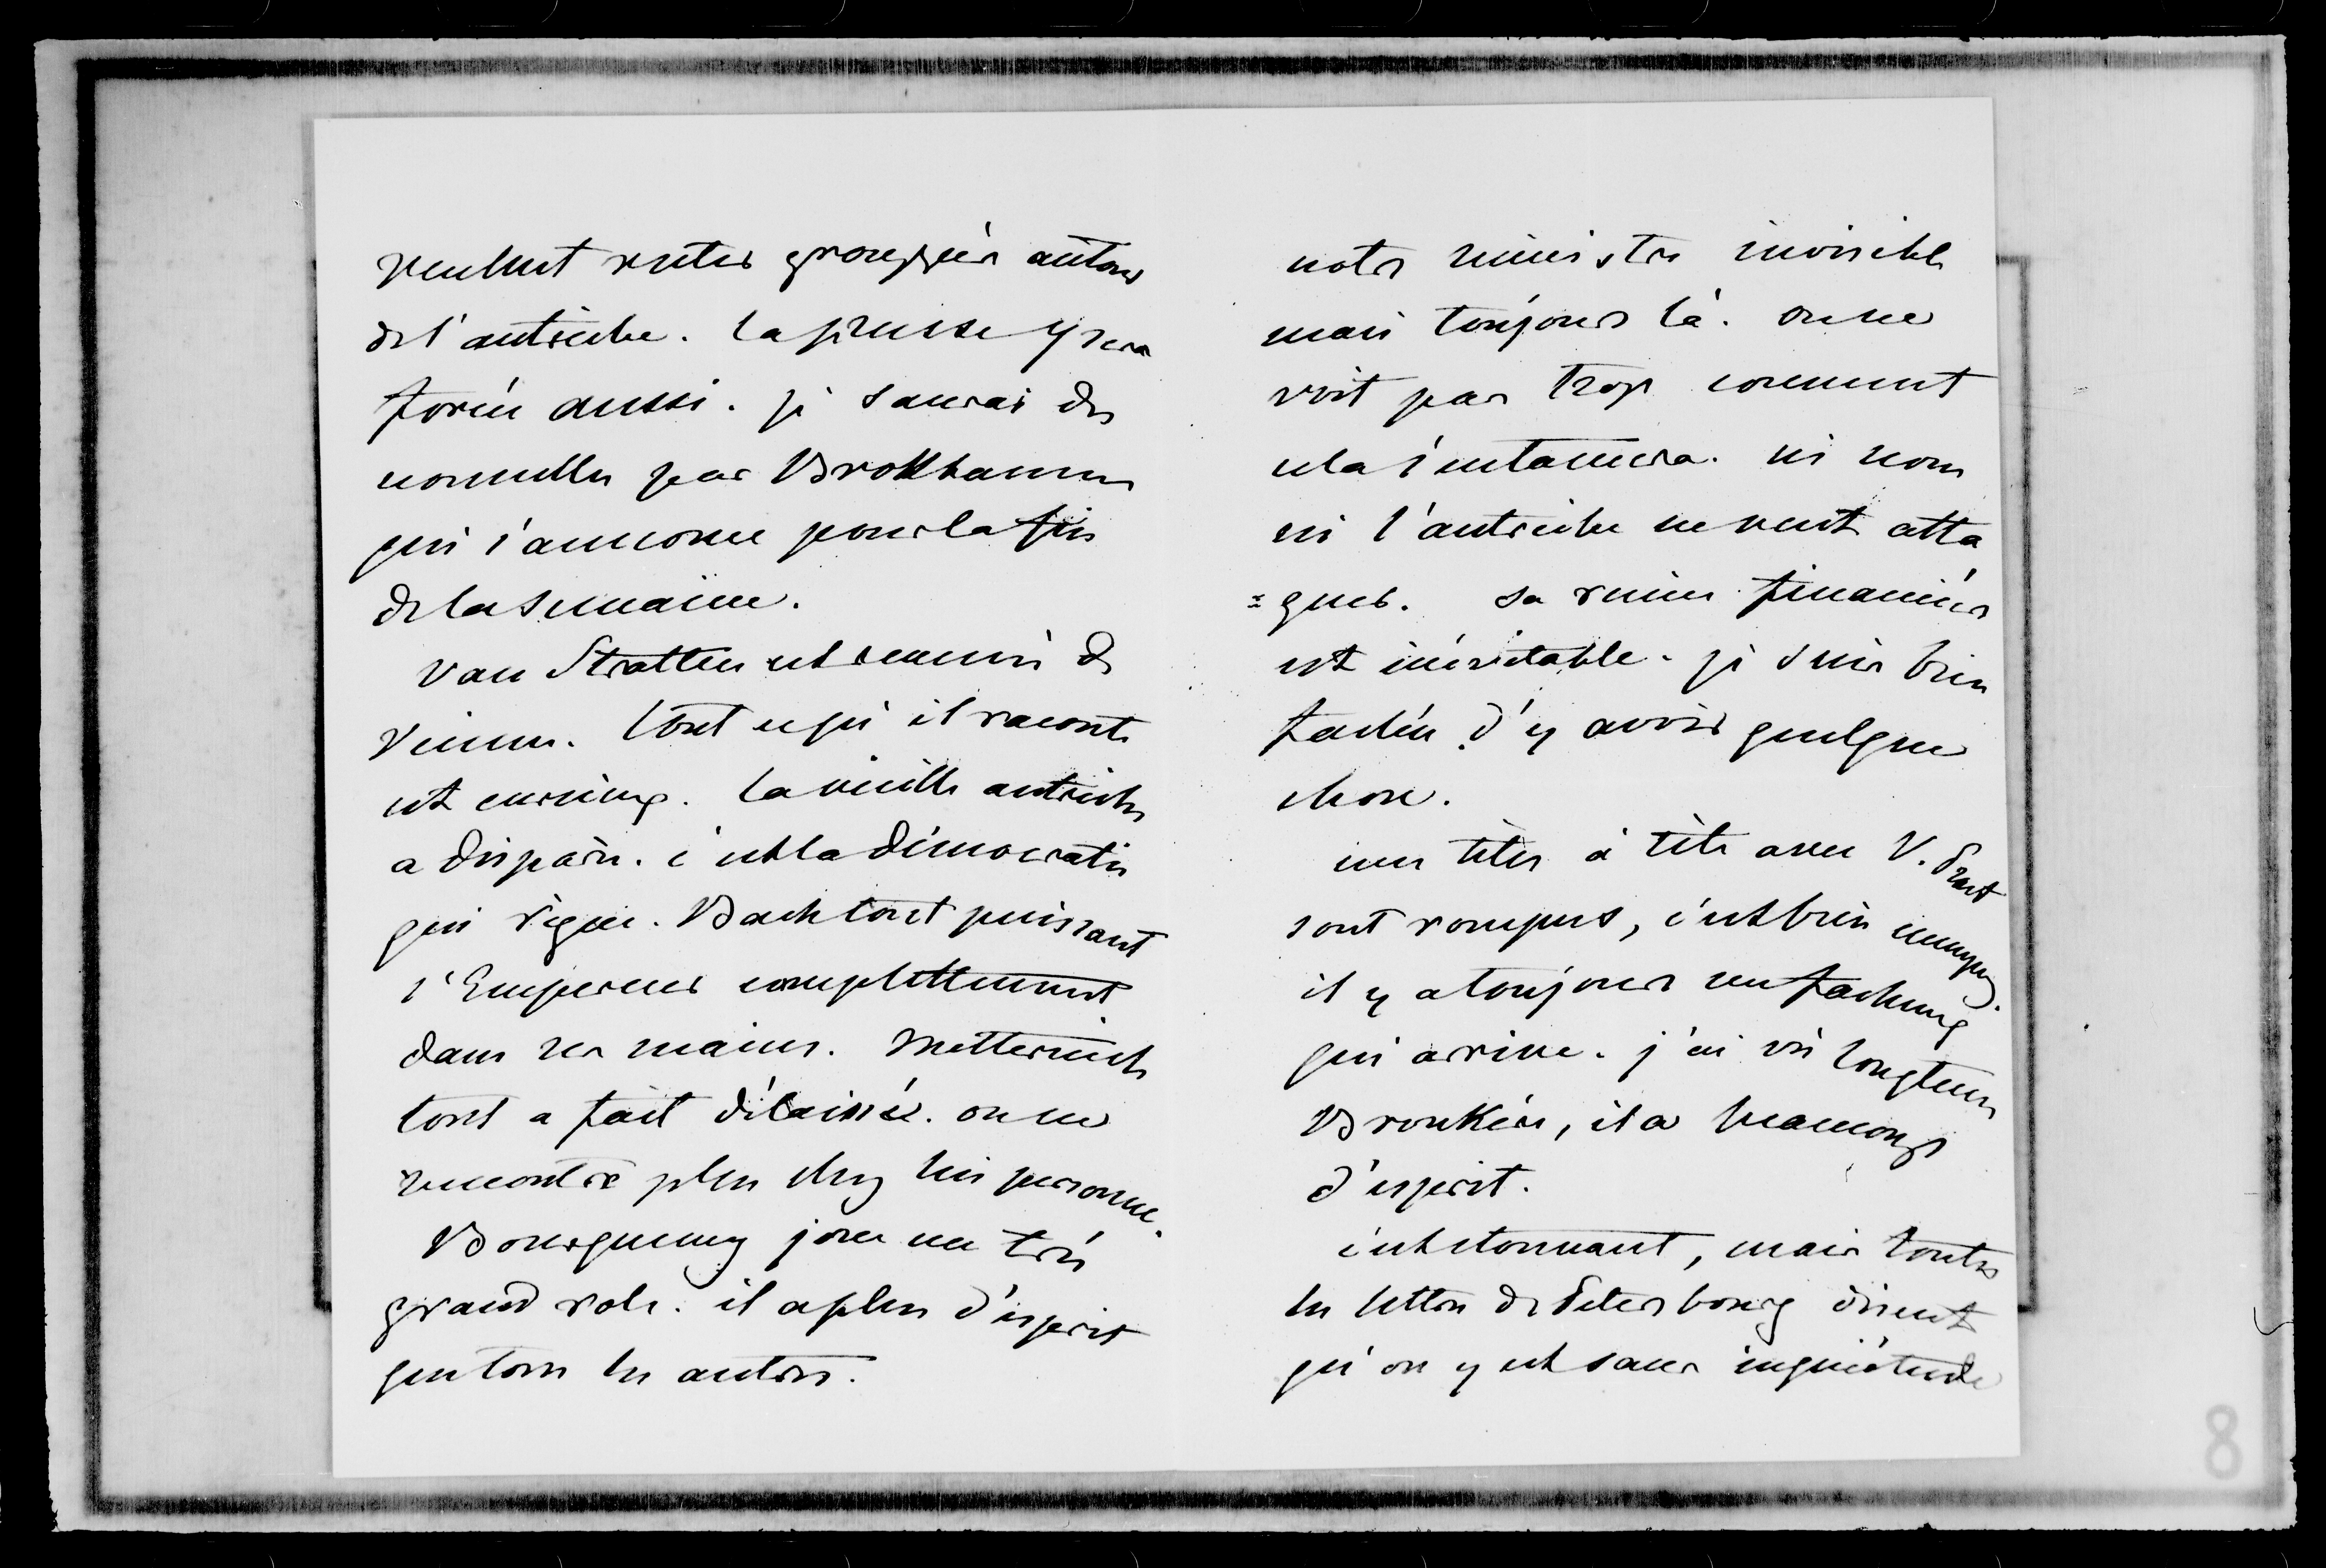 veulent rester grouppés autour
de l'autriche. la prusse y sera
forcée aussi. je saurai des
nouvelles par Brokhausen
qui s'annonce pour la fin
de la semaine.
Van Stratten est revenu de
Vienne. tout ce qu'il raconte
est curieux. la vieille autriche
a disparu. c'est la démocratie
qui règne. Bach tout puissant
l'Empereur complettement
dans ses mains. Metternich
tout a fait délaissé. on ne
rencontre plus chez lui personne.
Bourqueney joue un très
grand role. il a plus d'esprit
que tous les autres.
notre ministre invisible
mais toujours là. on ne
voit pas trop comment
cela s'entamera. ni nous
ni l'autriche ne veut atta
=quer. sa ruine financière
est inévitable. je suis bien
fachée d'y avoir quelque
chose.
mes têtes à tête avec V. Prat
sont rompus, c'est bien ennuyeux.
il y a toujours un facheux
qui arrive. j'ai vu longtems
Broukère, il a beaucoup
d'esprit.
c'est etonnant, mais toutes
les lettres de Petersbourg disent
qu'on y est sans inquiétude
8